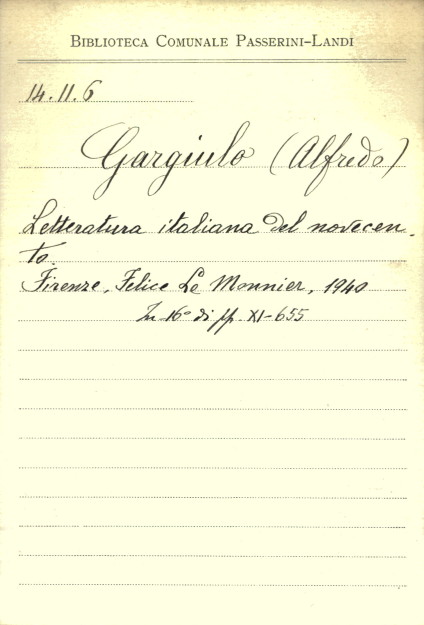 BIBLIOTECA COMUNALE PASSERINI-LANDI
14.11.6
Gargiulo (Alfredo)
Letteratura italiana del novecen-
to.
Firenze, Felice Le Monnier, 1940
In 16° di pp. XI-655